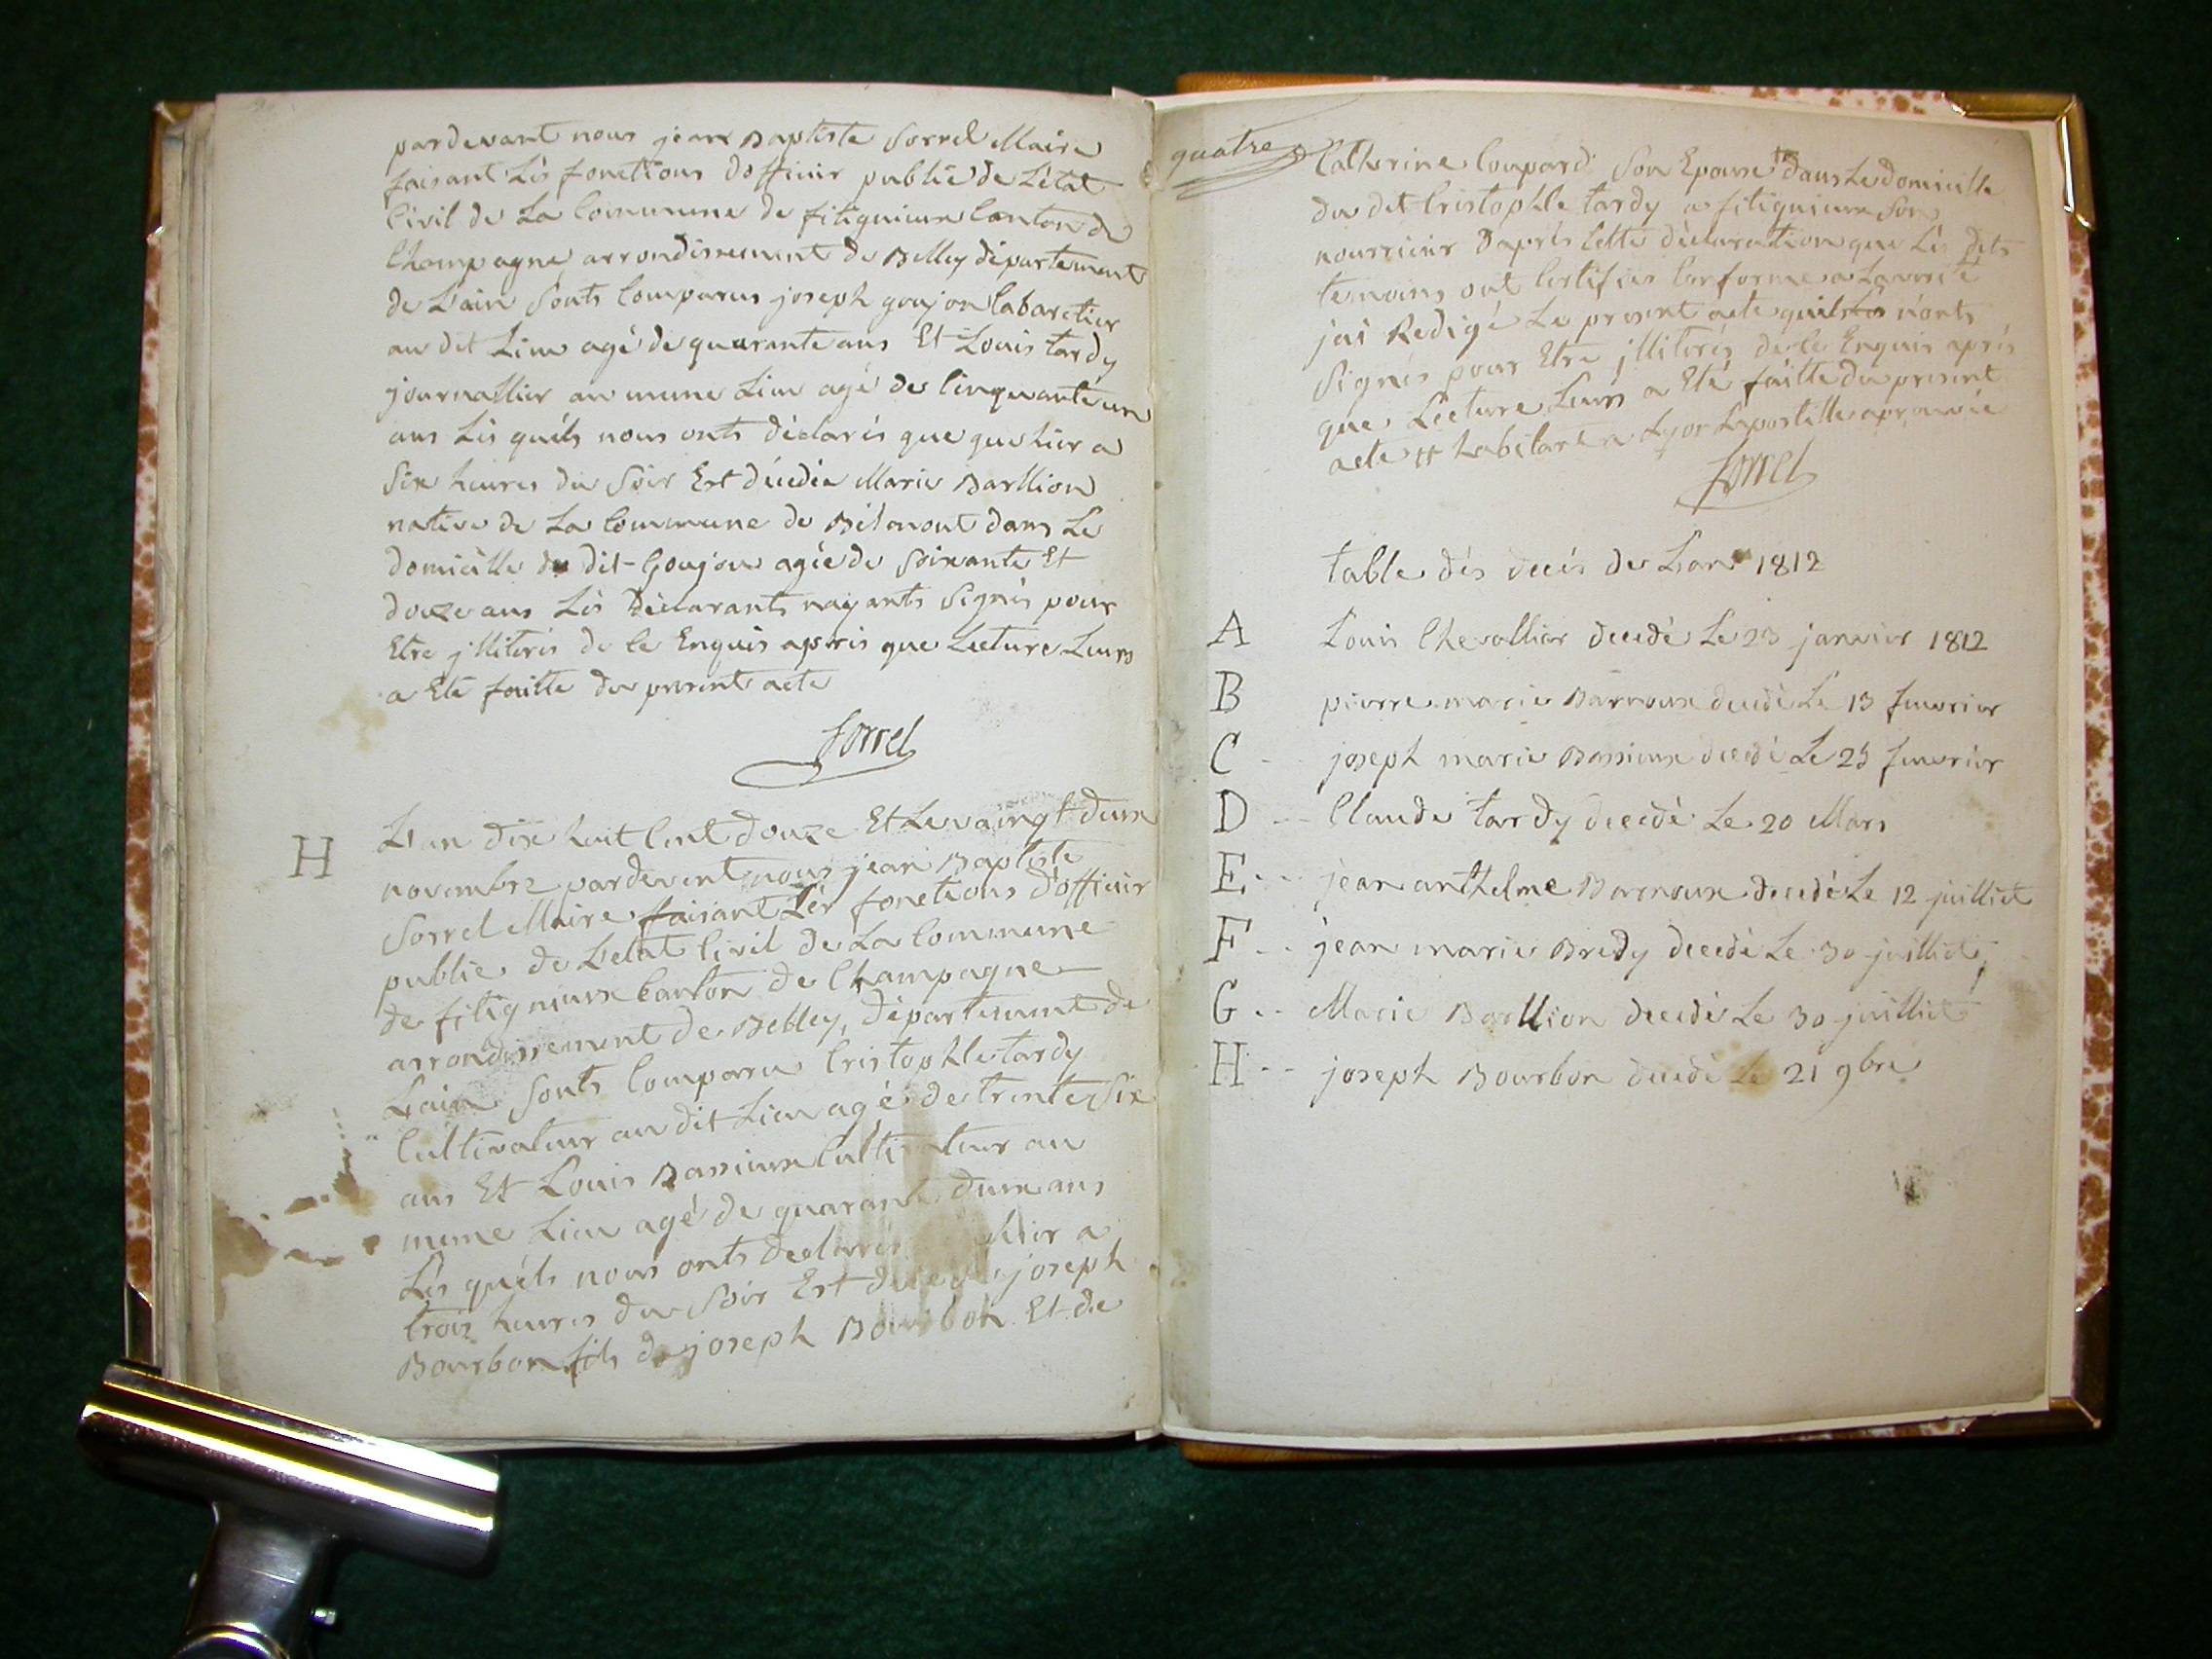 pardevant nous jean Baptiste Sorrel Maire
faisant Lés fonctions dofficier public de Létat
Civil de La Commune de fitignieux Canton de
Champagne arrondissement de Belley département
de L'ain Sonts Comparus joseph goujon Cabaretier
au dit Lieu agé de quarante ans Et Louis tardy
journallier au meme Lieu agé de Cinquante un
ans Lés quéls nous onts déclarés que que hier a
Six heures du Soir Est décédée Marie Barllion
native de La Commune de Bélmont dans Le
domicille du dit Goujon agée de Soixante Et
douze ans Lés déclarants nayants Signés pour
Etre jlliterés de Ce Enquis aprés que Lecture Leurs
a Eté faitte du present acte
Sorrel
H
L'an dix huit Cent douze Et Le vaingt deux
novembre pardevent nous jean Baptiste
Sorrel Maire faisant Lés fonctions d'officier
public de L'etat Civil de La Commune
de fitignieux Canton de Champagne
arrondissement de Belley, département de
L'ain Sonts Comparu Cristophle tardy
Cultivateur au dit Lieu agé de trente Six
ans Et Louis Bassieux Cultivateur au
meme Lieu agé de quarante deux ans
Lés quéls nous onts declarés hier a
trois heures du Soir Est decedé joseph
Bourbon fils de joseph Bourbon Et de
quatre
Catherine Coupard Son Epouse # dans Le domicille
du dit Cristophle tardy a fitignieux Son
nourricier D'aprés Cette déclaration que Lés dits
temoins ont Certifiés Conforme a La verité
jai Redigé Le present acte quils n'onts
Signés pour Etre jlliterés de Ce Enquis aprés
que Lecture Leurs a Eté faitte du present
acte # habitant a Lyon Lapostille aprouvée
Sorrel
table dés decés de L'an 1812
A Louis Chevallier decedé Le 23 janvier 1812
B pierre marie Barnoux decedé Le 13 feuvrier
C - joseph marie Bassieux decedé Le 25 feuvrier
D -- Claude tardy decedé Le 20 Mars
E -- jean anthelme Barnoux decedé Le 12 juilliet
F -- jean marie Bredy decedé Le 30 juilliet
G -- Marie Barllion decedé Le 30 juilliet
H -- joseph Bourbon decedé Le 21 9bre